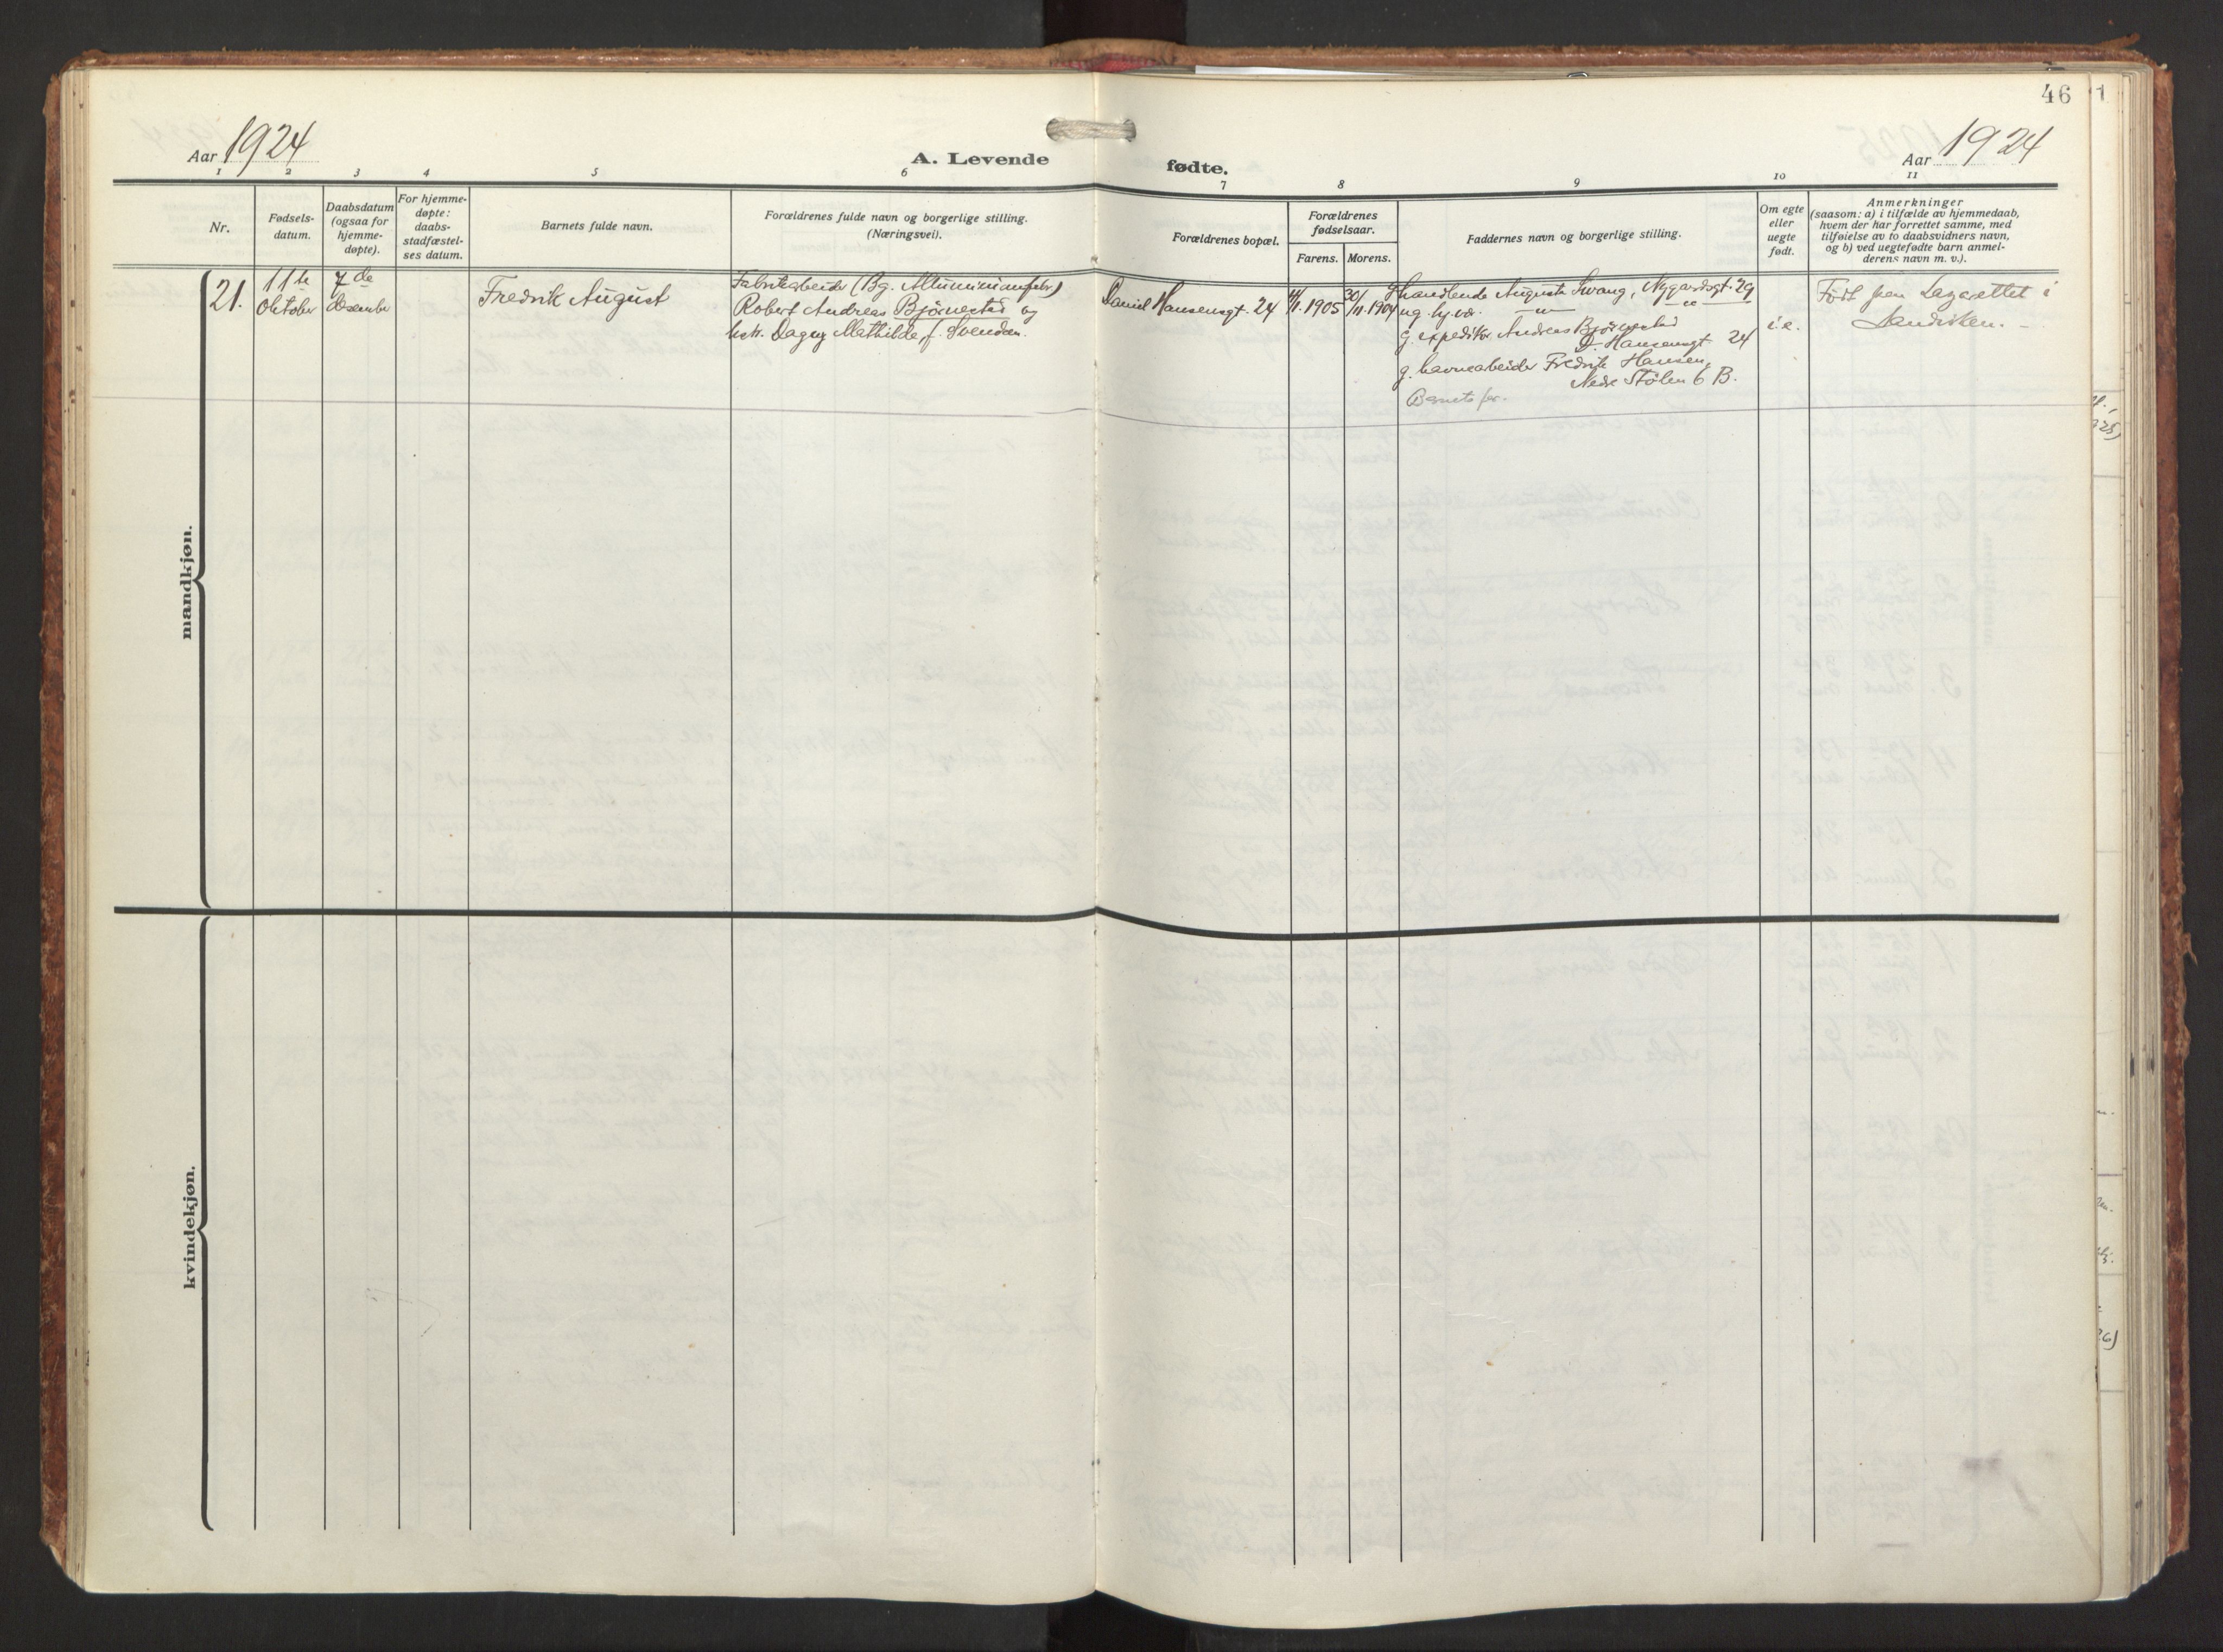 46
Aar 1924
A. Levende
fødte.
Aar 1924
1
2
3
4
5
6
7
8
9
10
11
Nr.
Fødsels-
datum.
Daabsdatum
(ogsaa for
hjemme-
døpte).
For hjemme-
døpte:
daabs-
stadfæstel-
ses datum.
Barnets fulde navn.
Forældrenes fulde navn og borgerlige stilling.
(Næringsvei).
Forældrenes bopæl.
Forældrenes
fødselsaar.
Farens.
Morens.
Faddernes navn og borgerlige stilling.
Om egte
eller
uegte
født.
Anmerkninger
(saasom: a) i tilfælde av hjemmedaab,
hvem der har forrettet samme, med
tilføielse av to daabsvidners navn,
og b) ved uegtefødte barn anmel-
derens navn m. v.).
mandkjøn.
21.
11te
Oktober
7de
desember
Fredrik August
Fabrikarbeider (Bg. Alluminiumfabr)
Robert Andreas Bjørnestad og
hstr. Dagny Mathilde f. Svendsen.
Daniel Hansensgt. 24
1905
30/11 1904
handlende Augusta Svang, Nygaardsgt. 29
ug. hj.vær.
g. expeditør Andreas Bjørnestad
D. Hansensgt 24
g. havnearbeider Fredrik Hansen,
Nedre Stølen 6 B.
Barnets far.
i.e.
Født paa Lazarettet i
Sandviken.
kvindekjøn.